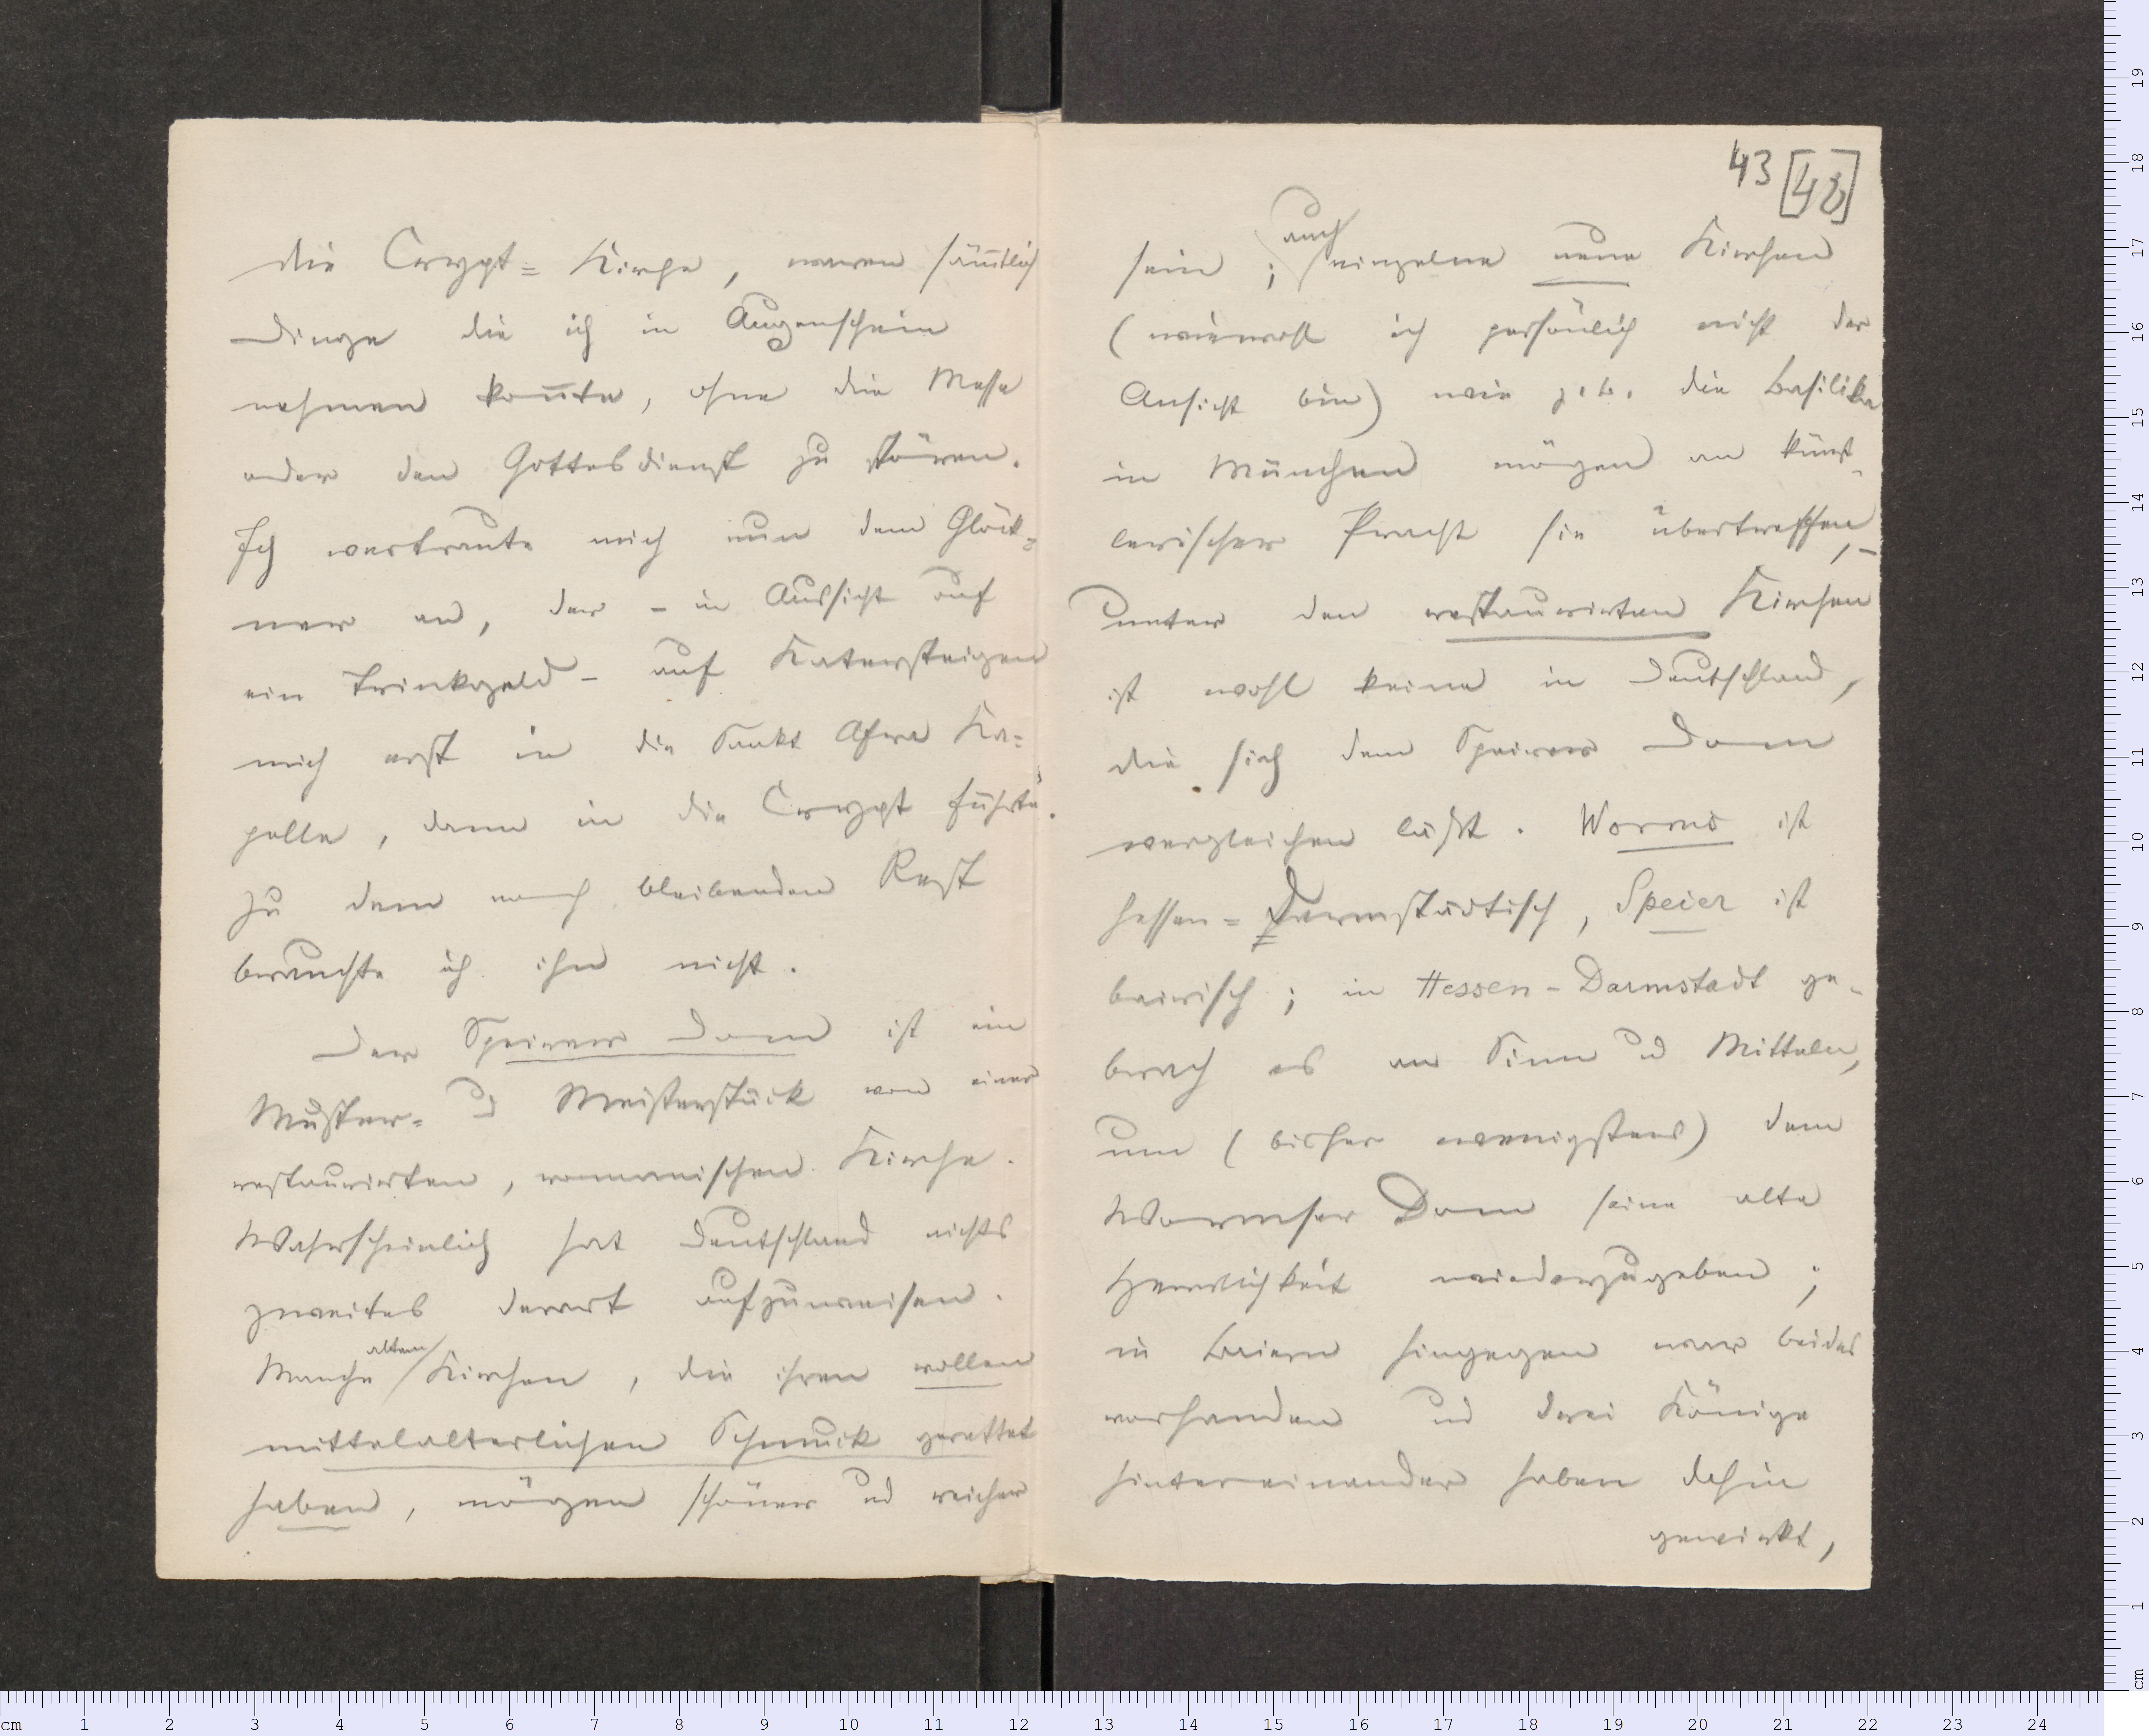 die Crypt=Kirche, waren sämtlich
Dinge die ich in Augenschein
nehmen konnte, ohne die Messe
oder den Gottesdienst zu stören.
Ich vertraute mich nun dem Glöck=
ner an, der – in Aussicht auf
ein Trinkgeld – auf Katersteigen
mich erst in die Sankt Afra Ka=
pelle, dann in die Crypt führte.
Zu dem noch bleibenden Rest
brauchte ich ihn nicht.
Der Speirer Dom ist ein
Muster- u Meisterstück von einer
restaurirten, romanischen Kirche.
Wahrscheinlich hat Deutschland nichts
zweites derart aufzuweisen.
alten
Manche Kirchen, die ihren vollen
mittelalterlichen Schmuck gerettet
haben, mögen schöner ud reicher
43 [42]
auch
sein; einzelne neue Kirchen
(wiewohl ich persönlich nicht der
Ansicht bin) wie z.b. die Basilika
in München mögen an künst-
lerischer Pracht sie übertreffen, –
unter den restaurirten Kirchen
ist wohl keine in Deutschland,
die sich dem Speirer Dom
vergleichen läßt. Worms ist
hessen=Darmstädtisch, Speier ist
bairisch; in Hessen-Darmstadt ge-
brach es an Sinn ud Mitteln,
um (bisher wenigstens) dem
Wormser Dom seine alte
Herrlichkeit wiederzugeben;
in Baiern hingegen war beides
vorhanden ud drei Könige
hintereinander haben dahin
gewirkt,